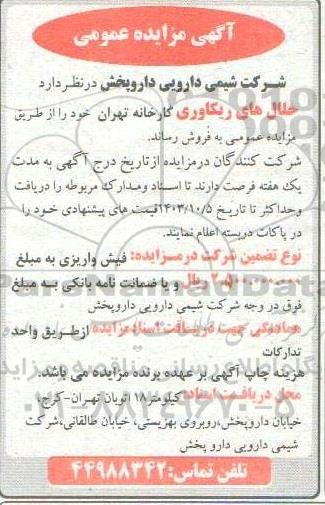 آگهی مزایده عمومی
شرکت شیمی دارویی داروپخش در نظر دارد
حلال های ریکاوری کارخانه تهران خود را از طریق
مزایده عمومی به فروش رساند.
شرکت کنندگان در مزایده از تاریخ درج آگهی به مدت
یک هفته فرصت دارند تا اسناد و مدارک مربوطه را دریافت
و حداکثر تا تاریخ ۱۴۰۳/۱۰/۵ قیمت های پیشنهادی خود را
در پاکات دربسته اعلام نمایند.
نوع تضمین شرکت در مزایده: فیش واریزی به مبلغ
ریال و یا ضمانت نامه بانکی به مبلغ
فوق در وجه شرکت شیمی دارویی داروپخش
هماهنگی جهت دریافت اسناد مزایده از طریق واحد
تدارکات
هزینه چاپ آگهی بر عهده برنده مزایده می باشد.
محل دریافت اسناد: کیلومتر ۱۸ اتوبان تهران-کرج،
خیابان داروپخش، روبروی بهزیستی، خیابان طالقانی، شرکت
شیمی دارویی دارو پخش
تلفن تماس: ۴۴۹۸۸۳۴۲